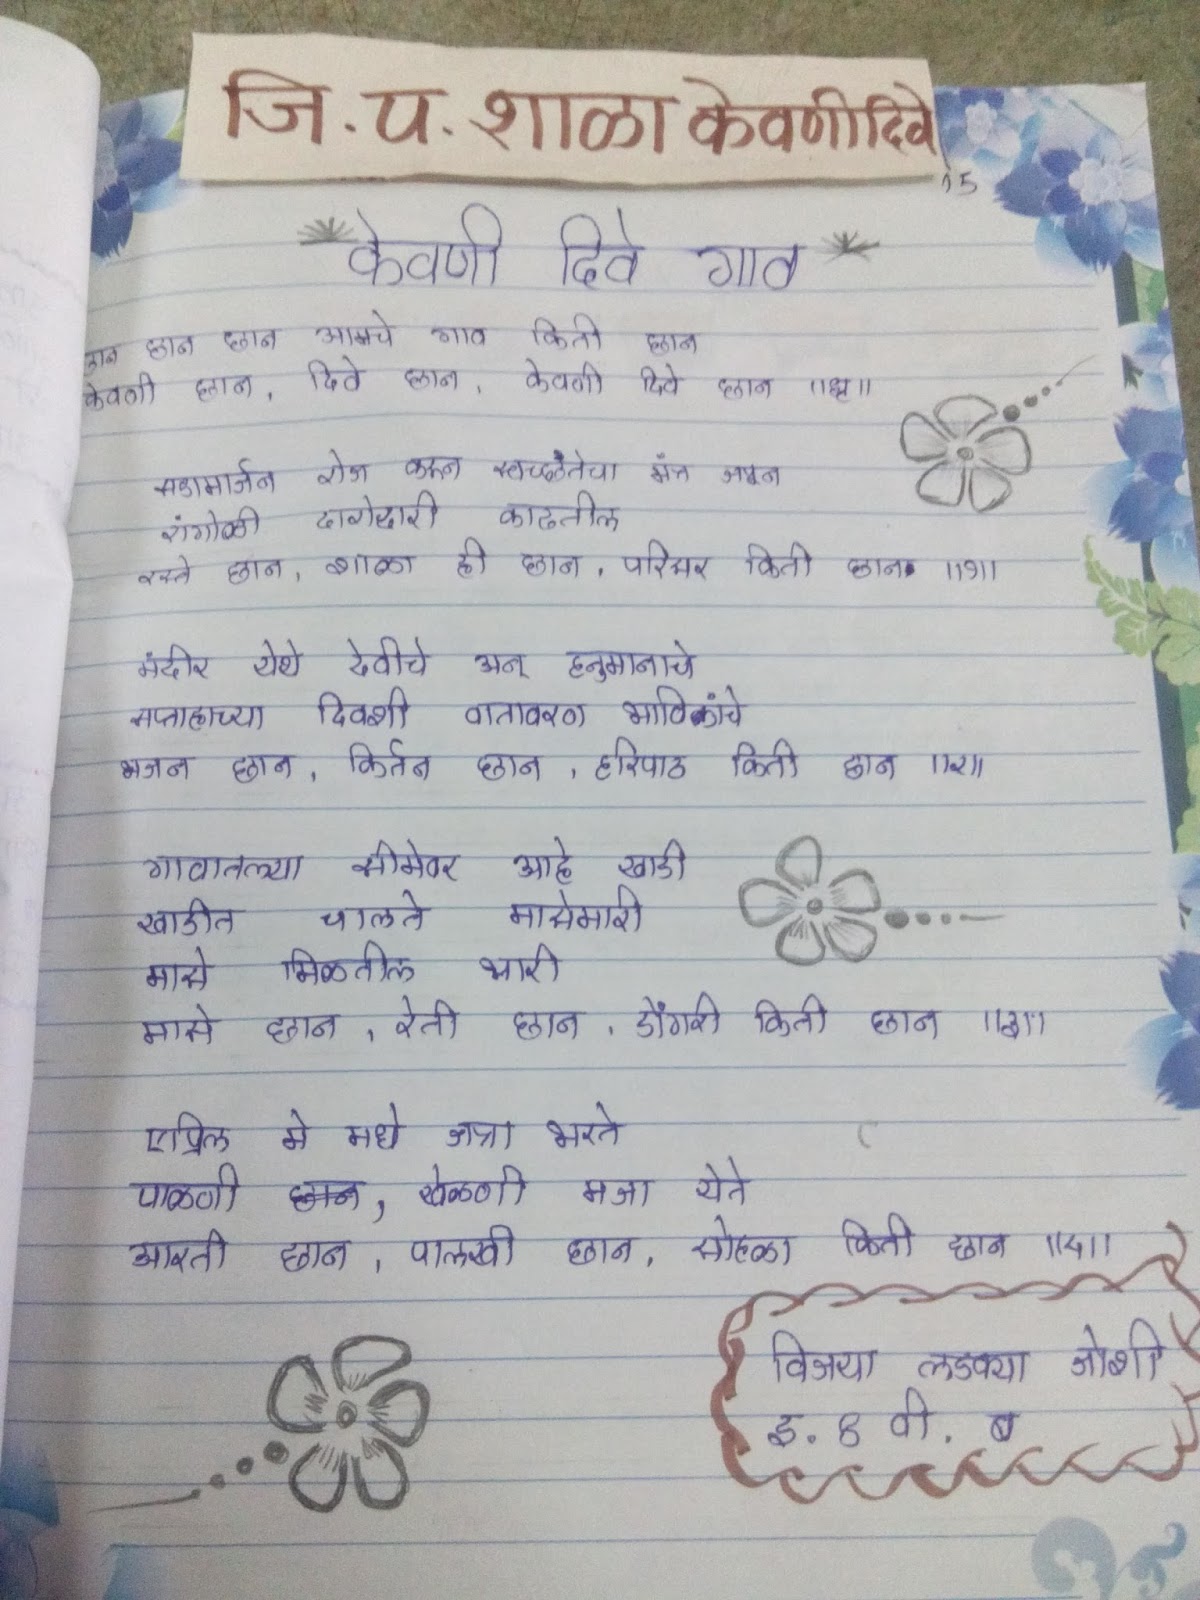 जि. प. शाळा केवणीदिवे
15
केवणी दिवे गाव
छान छान छान आमचे गाव किती छान
केवणी छान, दिवे छान, केवणी दिवे छान ॥धृ॥
सडामार्जन रोज करून स्वच्छतेचा मंत्र जपून
रांगोळी दारोदारी काढतील
रस्ते छान, शाळा ही छान, परिसर किती छान ॥१॥
मंदीर येथे देवीचे अन् हनुमानाचे
सप्ताहाच्या दिवशी वातावरण भाविकांचे
भजन छान, किर्तन छान, हरिपाठ किती छान ॥२॥
गावातल्या सीमेवर आहे खाडी
खाडीत चालते मासेमारी
मासे मिळतील भारी
मासे छान, रेती छान, डोंगरी किती छान ॥३॥
एप्रिल मे मधे जत्रा भरते
पाळणी छान, खेळणी मजा येते
आरती छान, पालखी छान, सोहळा किती छान ॥४॥
विजया लडक्या जोशी
इ. ८ वी. ब